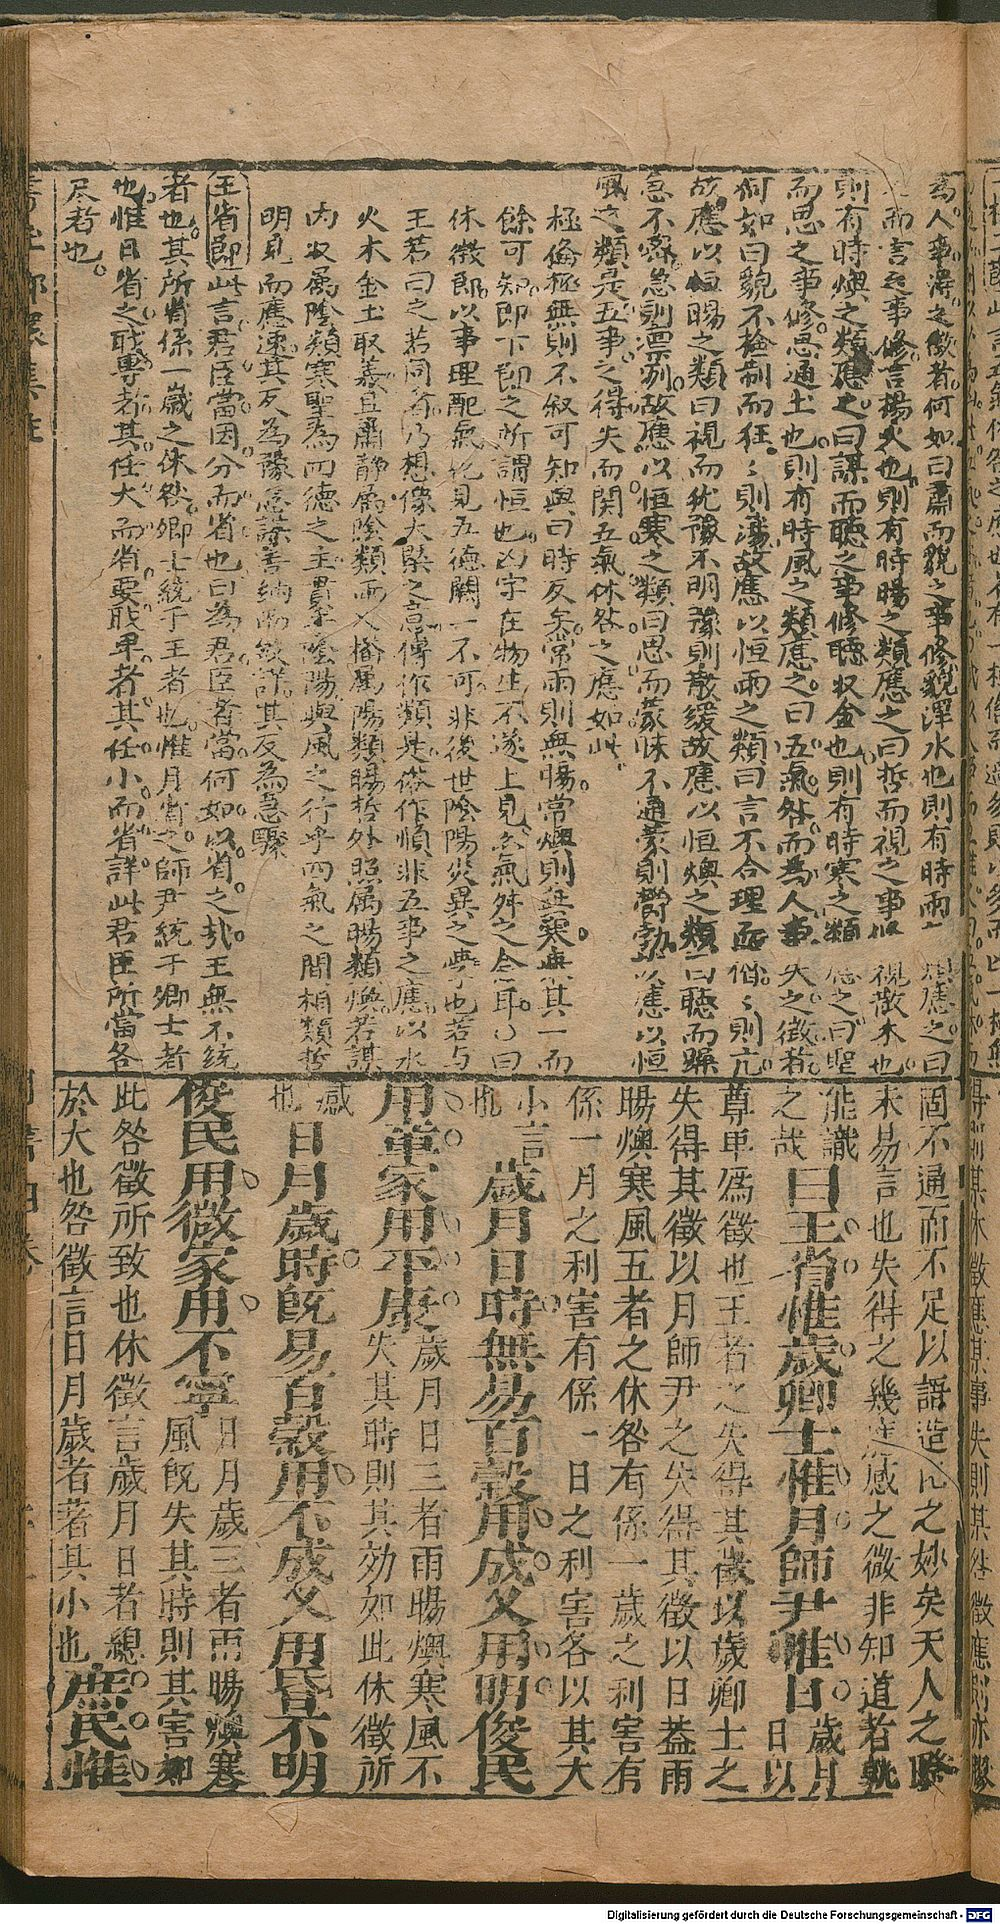 為人事得之徵者何如曰肅而貌之事修貌澤水也則有時雨
而言之事修言揚火也則有時暘之類應之曰哲而視之事修視散木也
則有時燠之類應之曰謀而聽之事修聽收金也則有時寒之類應之曰聖
而思之事修思通土也則有時風之類應之曰五氣咎而為人事失之徵者
何如曰貌不檢制而狂狂則蕩故應以恒雨之類曰言不合理而僭僭則亢
故應以恒暘之類曰視而猶豫不明豫則散緩故應以恒燠之類曰聽而躁
急不密急則凓冽故應以恒寒之類曰思而蒙昧不通蒙則鬱勃故應以恒
風之類是五事之得失而関五氣休咎之應如此
極俻極無則不叙可知與曰時反矣常雨則無暘常燠則無寒無其一而
餘可知即下即之所謂恒也凶字在物生不遂上見
休徵即以事理配氣化見五德闕一不可非後世陰陽災異之學也若与
王若曰之若同看乃想像大槩之意傳作類是俗作順非五事之應以水
火木金土取義且肅静属陰類雨乂楷属陽類暘哲外照属暘類燠若謀
内収属陰類寒聖為四德之主貫乎陰陽與風之行乎四氣之間相類哲
明見而應速其反為豫急謀善納而欽詳其反為急驟
王省即此言君臣當因分而省也曰為君臣者當何如以省之哉王無不統
者也其所省係一歲之休咎卿士統于王者也惟月省之師尹統于卿士者
也惟日省之職專者其任大而省要職卑者其任小而省詳此君臣所當各
尽者也
固不通而不足以語造化之妙矣天人之際
未易言也失得之幾應感之微非知道者孰
能識之哉曰王省惟歲卿士惟月師尹惟日歲月日以
尊卑爲徵也王者之失得其徵以歲卿士之
失得其徵以月師尹之失得其徵以日蓋雨
暘燠寒風五者之休咎有係一歲之利害有
係一月之利害有係一日之利害各以其大
小言也歲月日時無易百穀用成乂用明俊民
用章家用平康歲月日三者雨暘燠寒風不失其時則其効如此休徵所
感也日月歲時旣易百穀用不成乂用昏不明
俊民用微家用不寧日月歲三者雨暘燠寒風旣失其時則其害如
此咎徵所致也休徵言歲月日者總
於大也咎徵言日月歲者著其小也庶民惟
Digitalisierung gefördert durch die Deutsche Forschungsgemeinschaft - DFG